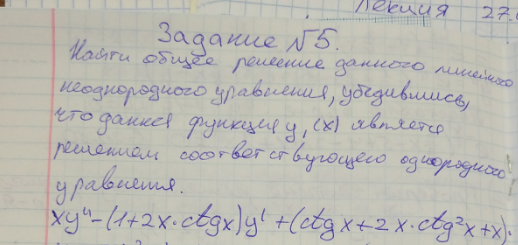 Лекция 27.
Задание №5.
Найти общее решение данного линейного
неоднородного уравнения, убедившись,
что данная функция y, (x) является
решением соответствующего однородного
уравнения.
xy" - (1+2x·ctgx)y' + (ctgx+2x·ctg²x+x)·